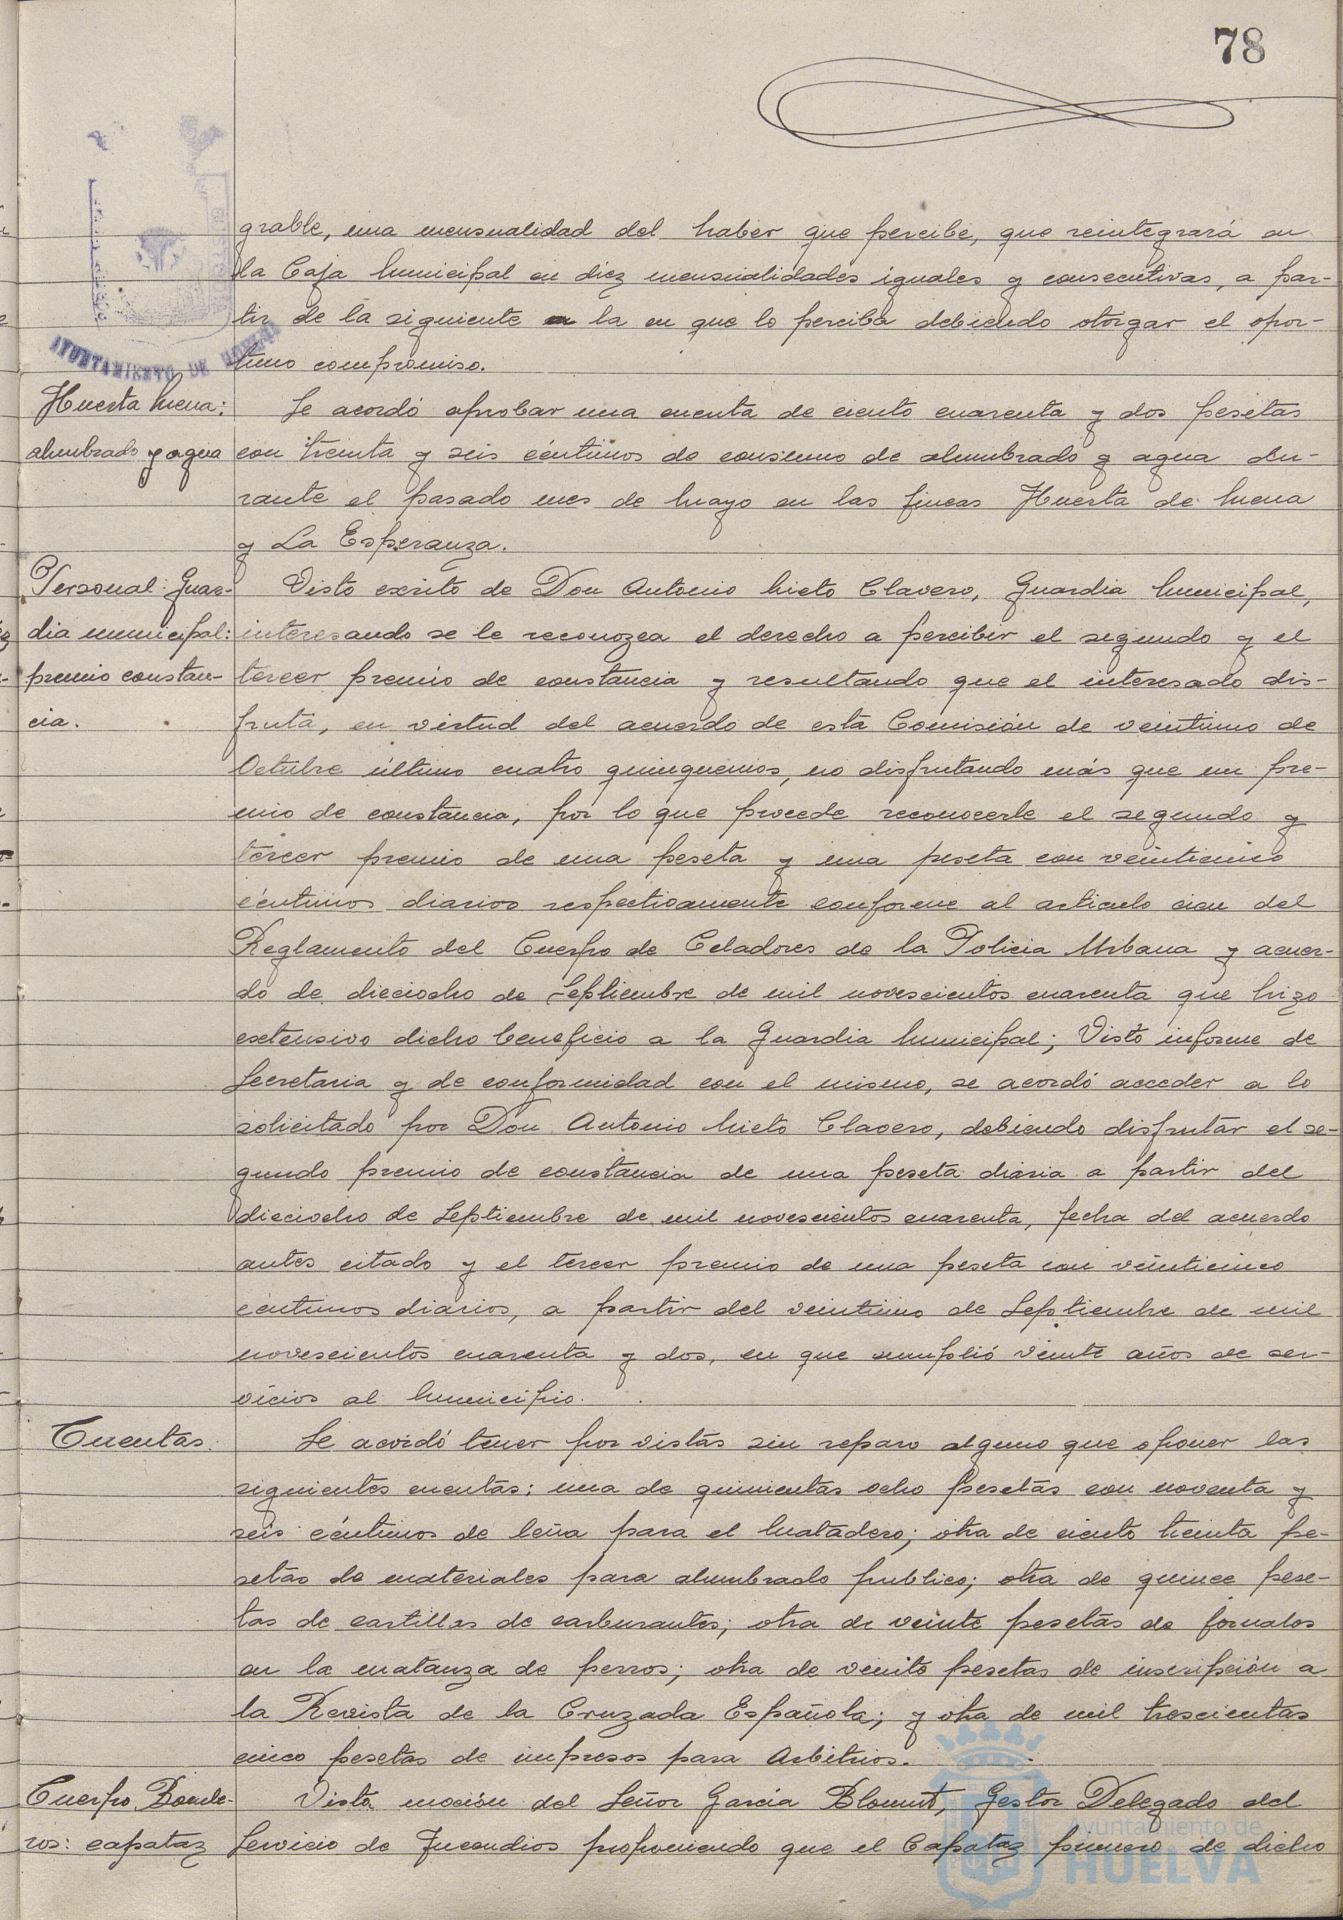 78
grable, una mensualidad del haber que percibe, que reintegrará en
la Caja Municipal en diez mensualidades iguales y consecutivas, a par-
tir de la siguiente a la en que lo perciba debiendo otorgar el opor-
tuno compromiso.
AYUNTAMIENTO DE HUELVA
Huerta Mena:
alumbrado y agua
Se acordó aprobar una cuenta de ciento cuarenta y dos pesetas
con treinta y seis céntimos de consumo de alumbrado y agua du-
rante el pasado mes de Mayo en las fincas Huerta de Mena
y La Esperanza.
Personal: Guar-
dia municipal:
premio constan-
cia.
Visto escrito de Don Antonio Nieto Clavero, Guardia Municipal,
interesando se le reconozca el derecho a percibir el segundo y el
tercer premio de constancia y resultando que el interesado dis-
fruta, en virtud del acuerdo de esta Comisión de veintiuno de
Octubre último cuatro quinquenios, no disfrutando más que un pre-
mio de constancia, por lo que procede reconocerle el segundo y
tercer premio de una peseta y una peseta con veinticinco
céntimos diarios respectivamente conforme al articulo cien del
Reglamento del Cuerpo de Celadores de la Policia Urbana y acuer-
do de dieciocho de Septiembre de mil novescientos cuarenta que hizo
extensivo dicho beneficio a la Guardia Municipal; Visto informe de
Secretaria y de conformidad con el mismo, se acordó acceder a lo
solicitado por Don Antonio Nieto Clavero, debiendo disfrutar el se-
gundo premio de constancia de una peseta diaria a partir del
dieciocho de Septiembre de mil novescientos cuarenta, fecha del acuerdo
antes citado y el tercer premio de una peseta con veinticinco
céntimos diarios, a partir del veintiuno de Septiembre de mil
novescientos cuarenta y dos, en que cumplió veinte años de ser-
vicios al Municipio.
Cuentas.
Se acordó tener por vistas sin reparo alguno que oponer las
siguientes cuentas: una de quinientas ocho pesetas con noventa y
seis céntimos de leña para el Matadero; otra de ciento treinta pe-
setas de materiales para alumbrado publico; otra de quince pese-
tas de cartillas de carburantes; otra de veinte pesetas de jornales
en la matanza de perros; otra de veinte pesetas de inscripción a
la Revista de la Cruzada Española; y otra de mil trescientas
cinco pesetas de impresos para Arbitrios.
Cuerpo Bombe-
ros: capataz
Vista moción del Señor Garcia Blomert, Gestor Delegado del
Servicio de Incendios proponiendo que el Capataz primero de dicho
Ayuntamiento de
HUELVA